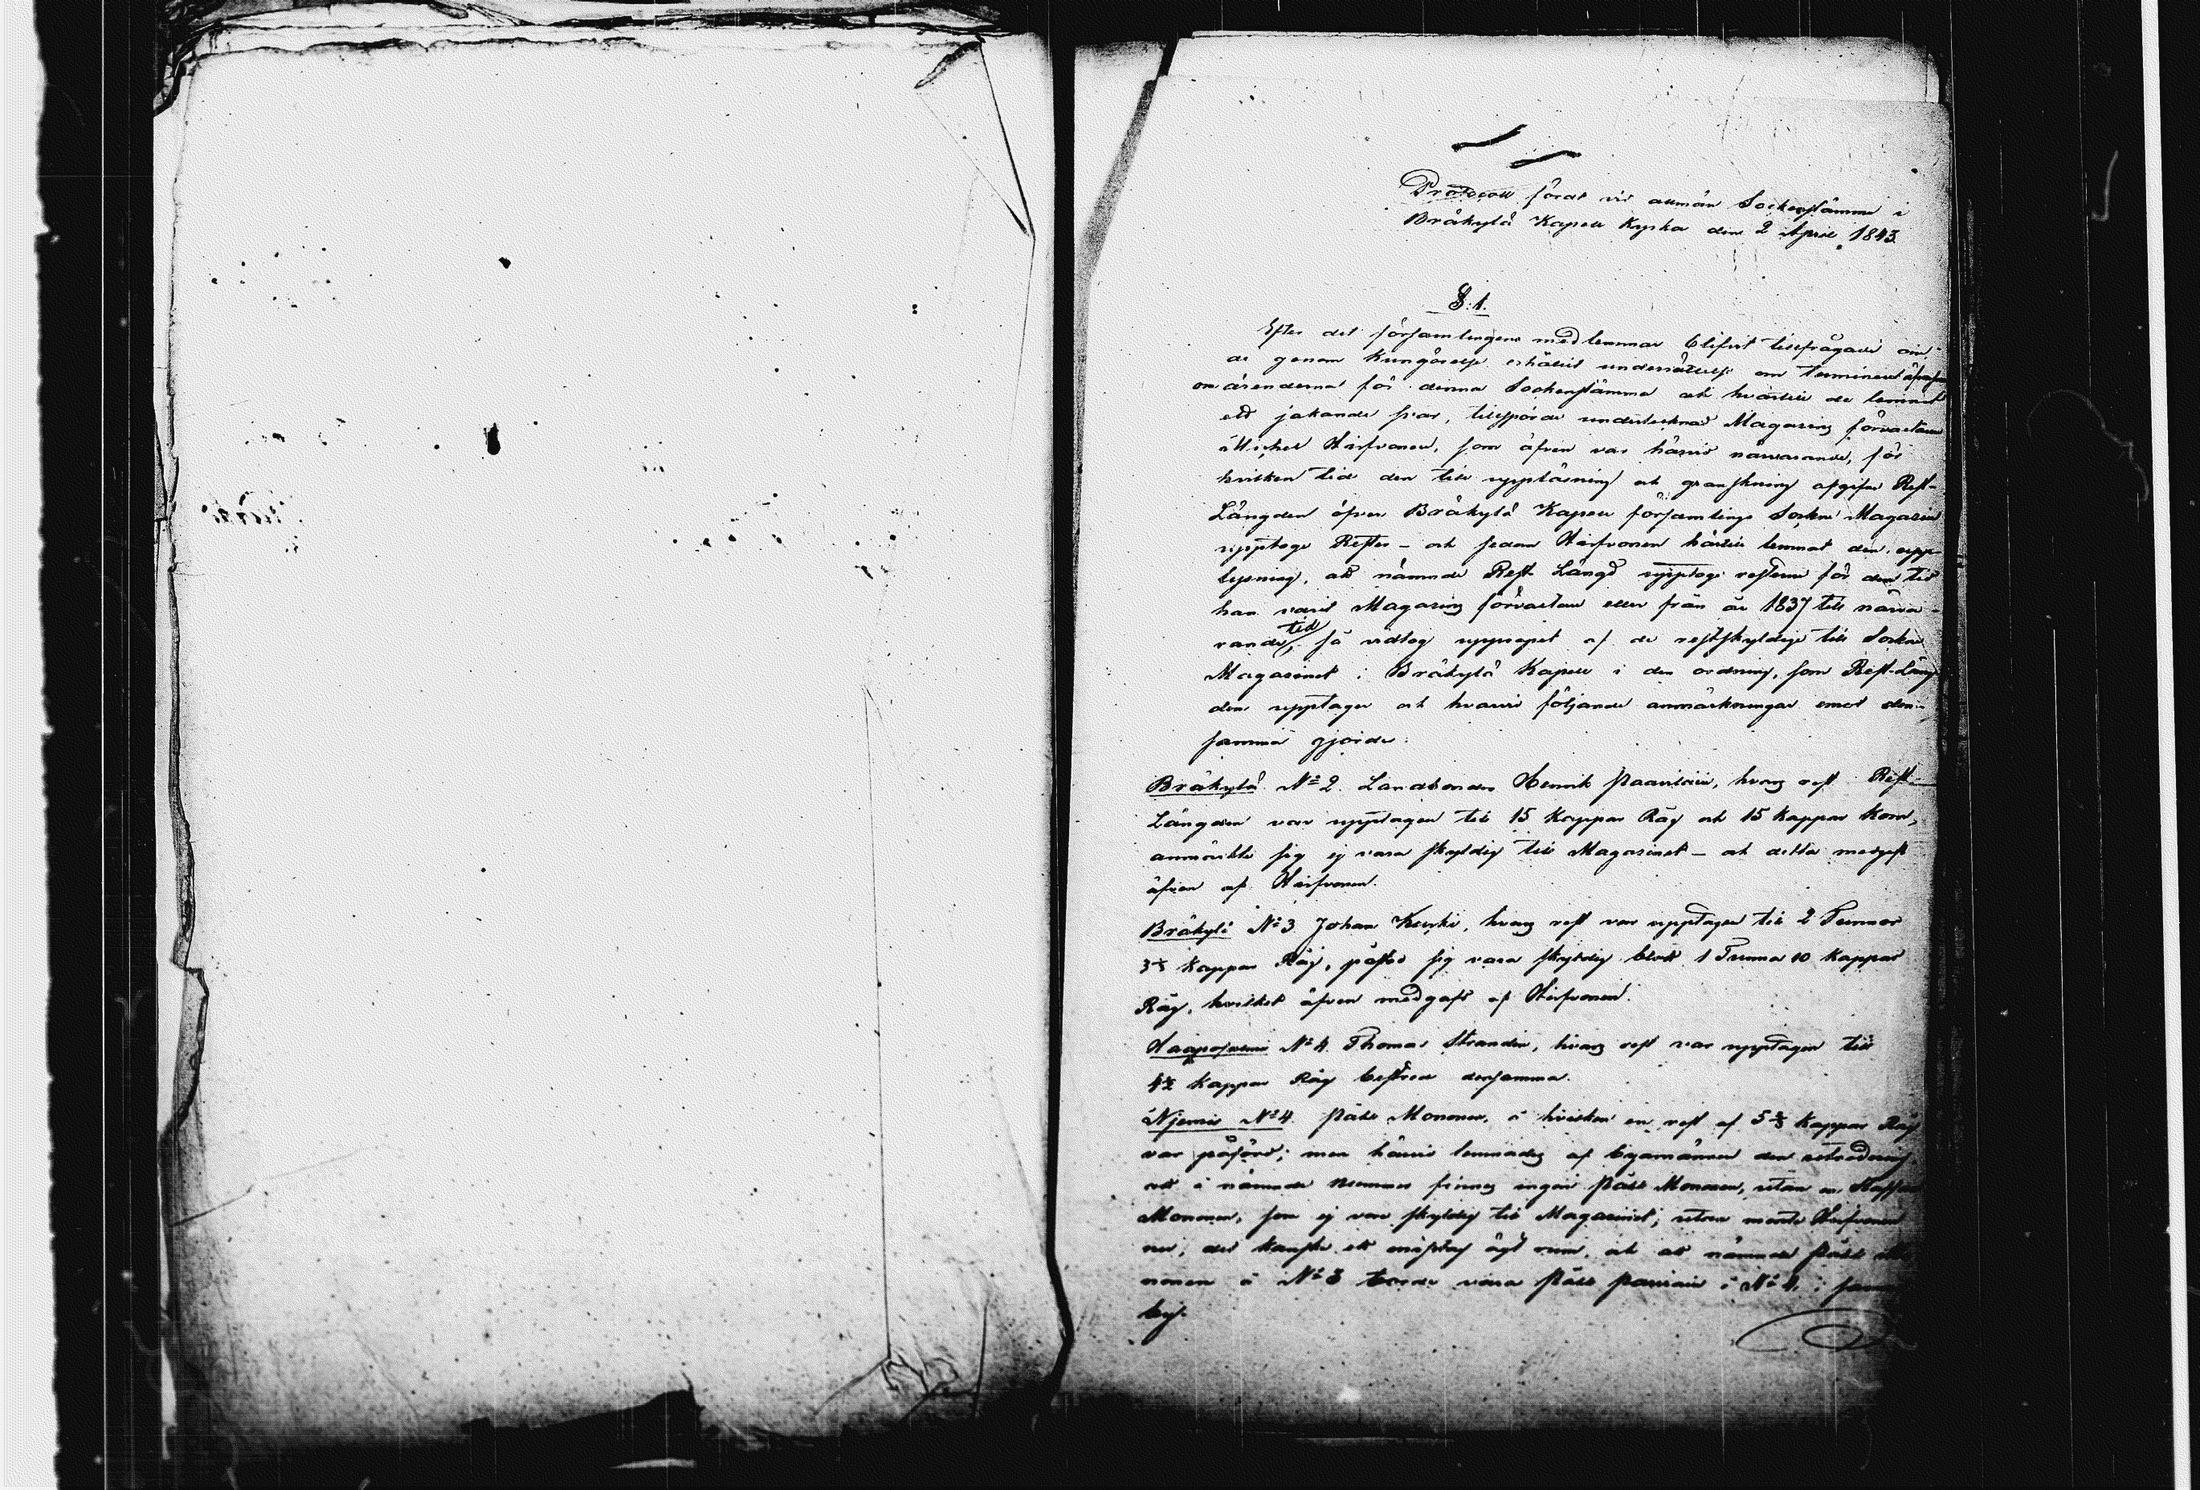 Protocoll fördt vid allmän Sockenstämma i
Bräkylä Kapell Kyrka den 2 April 1843.
§. 1.
Efter det församlingens medlemmar blifvit tillfrågade om
de genom kungörelse erhållit underrättelse om terminen
om ärenderna för denna Sockenstämma och härtill de lemnat
ett jakande svar, tillspörde undertecknad Magasins förvaltaren
Michel Hirfvonen, som äfven var härvid närvarande, för
hvilken tid den till uppläsning och granskning afgifne Rest-
Längden öfver Bräkylä Kapell församlings Sockne Magasin
upptoge Rester – och sedan Hirfvonen härtill lemnat den upp-
lysning, att nämnde Rest Längd upptoge resterne för den tid
han varit Magasins förvaltare eller från år 1837 till närva-
rande tid, så vidtog uppropet af de restskyldige till Sockne
Magasinet i Bräkylä Kapell i den ordning, som Rest-Läng-
den upptager och hvarvid följande anmärkningar emot den-
samma gjordes:
Bräkylä No 2. Landbonden Henrik Paavilain, hvars rest i Rest-
Längden var upptagen till 15 Kappar Råg och 15 Kappar Korn,
anmärkte sig ej vara skyldig till Magasinet – och detta medgafs
äfven af Hirfvonen.
Bräkylä No 3. Johan Kurki, hvars rest var upptagen till 2 Tunnor
Kappar Råg, påstod sig vara skyldig blott 1 Tunna 10 Kappar
Råg, hvilket äfven medgafs af Hirfvonen.
No 4. Thomas Strandén, hvars rest var upptagen till
4½ Kappar Råg bestred densamma.
Njemis No 4. Påhl Mononen, å hvilken en rest af 5⅔ Kappar Råg
var påförd; men härvid lemnades af byamännen den utredning
att å nämnde Nummer finnes ingen Påhl Mononen, utan en Staffan
Mononen, som ej vore skyldig till Magasinet; utan mente Hirfvonen
nu, det kanske ett misstag ägt rum, och att nämnde Påhl Mo-
nonen å No 3 borde vara Påhl Parviain å No 4, i samma
by.